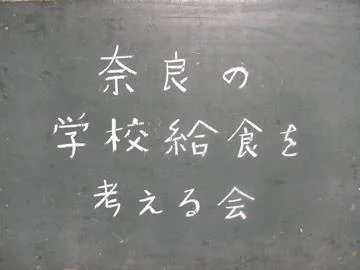 奈良の
学校給食を
考える会